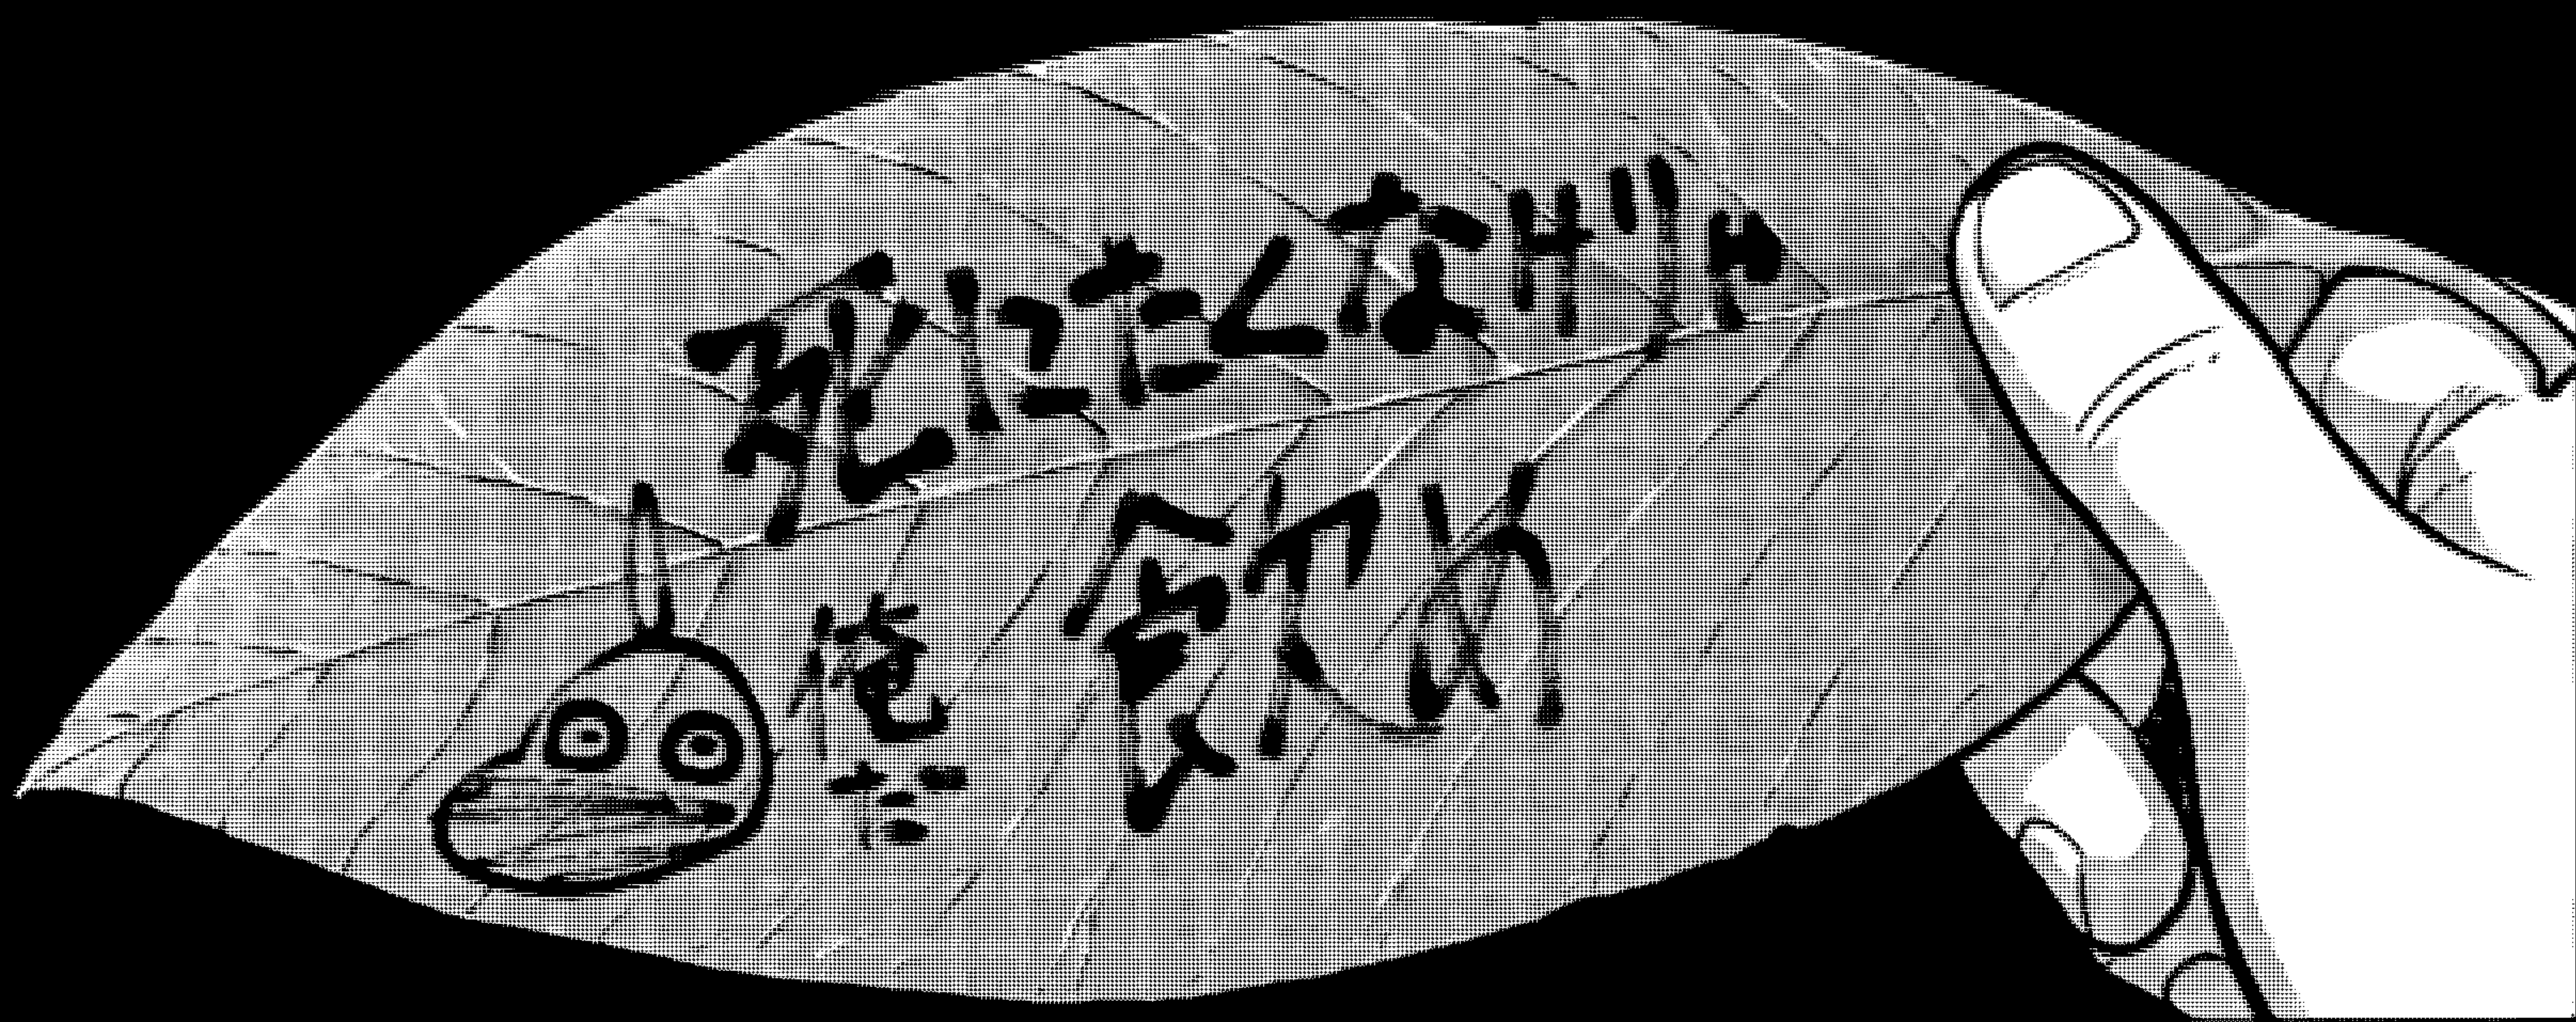 死にたくなけりゃ
飲め
俺だ